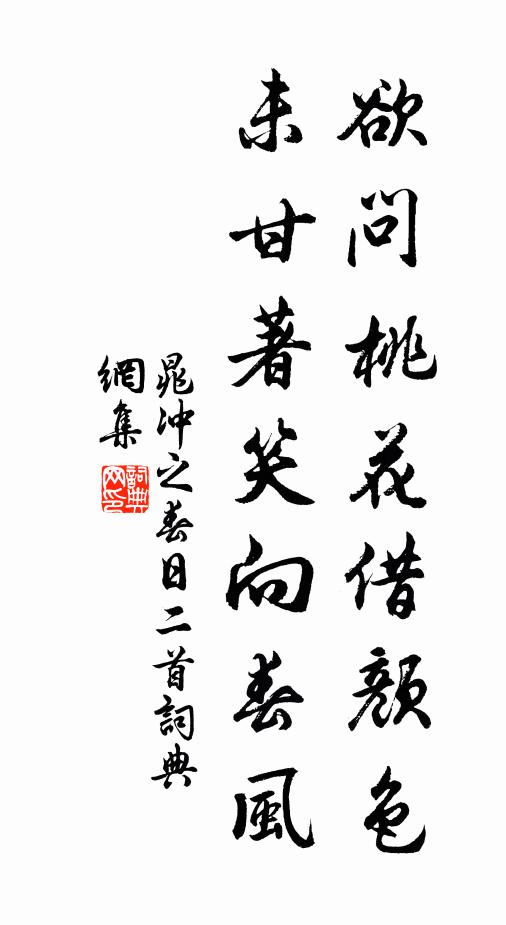 欲問桃花借顏色
未甘著笑向春風
晁冲之春日二首詞典
網集
詞典网印